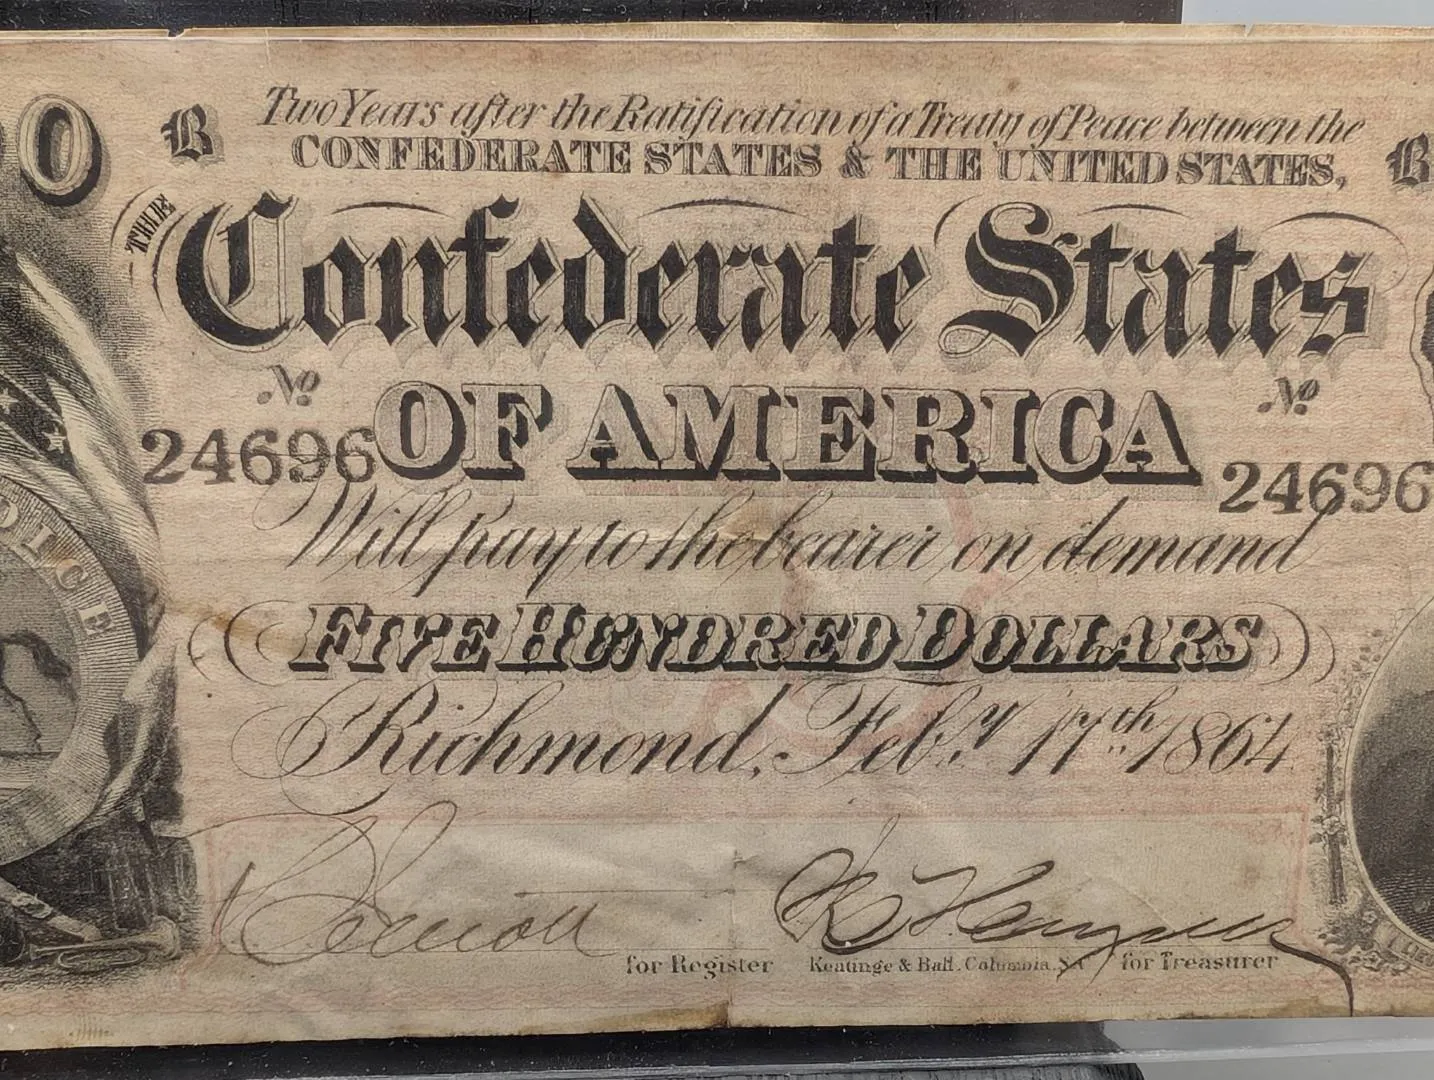 0 B Two Years after the Ratification of a Treaty of Peace between the B
CONFEDERATE STATES & THE UNITED STATES,
THE
Confederate States
No No
24696 OF AMERICA 24696
Will pay to the bearer on demand
DICE
FIVE HUNDRED DOLLARS
Richmond, Feb.y 17th 1864
for Register Keatinge & Ball, Columbia, S.C. for Treasurer